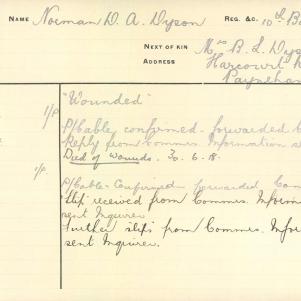 NAME Norman D. A. Dyson REG. &c. 10th B
NEXT OF KIN Mrs B. L. Dys
ADDRESS Harcourt R
Payneham
"Wounded"
1/P P/Cable confirmed - forwarded C
Reply from Commrs. Information s
Died of wounds. 30.6.18.
1/P P/Cable - Confirmed - forwarded Com
"Slip" received from Commrs. Inform
sent Inquirer
Further slips from Commrs. Infor
sent Inquirer.